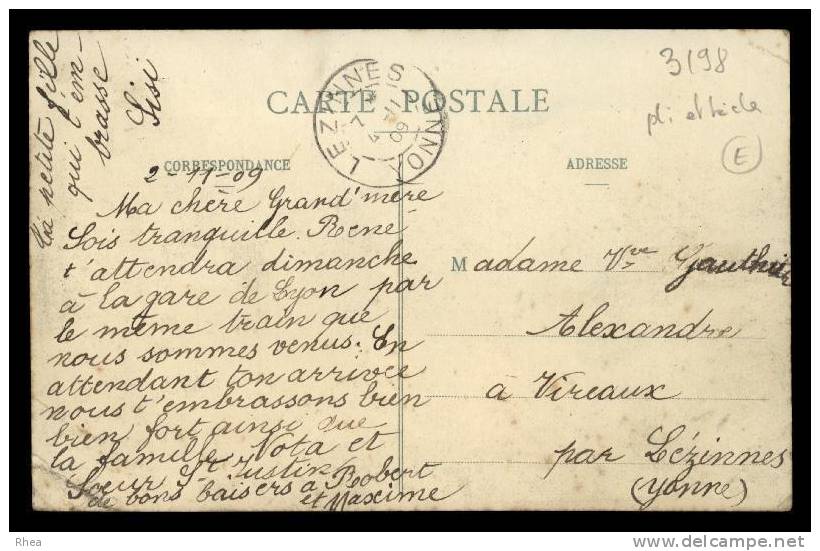 3198
CARTE POSTALE
LEZINNES YONNE
7
4 11
09
pli
E
CORRESPONDANCE
ADRESSE
2-11-09
Ma chère Grand'mère
Sois tranquille René
t'attendra dimanche
à la gare de Lyon par
le même train que
nous sommes venus. En
attendant ton arrivée
nous t'embrassons bien
bien fort ainsi que
la famille Nota et
Sœur St Justin
de bons baisers à Robert
et Maxime
Ta petite fille
qui t'em-
brasse
Sisi
Madame Vve Gauthier
Alexandre
à Vireaux
par Lézinnes
(Yonne)
Rhea
delcampe.net